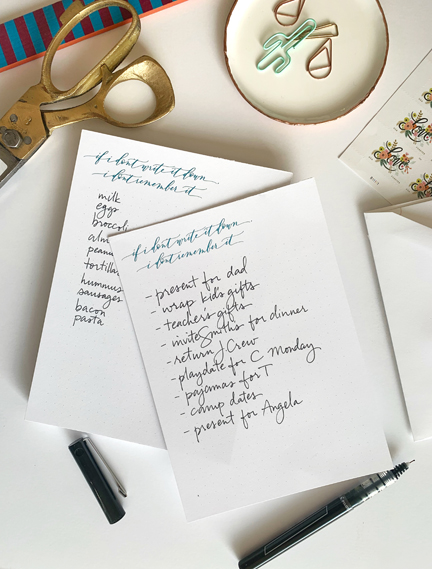 if i dont write it down
i dont remember it
milk
eggs
broccoli
tortilla
hummus
sausages
bacon
pasta
if i dont write it down
i dont remember it
- present for dad
- wrap kid's gifts
- teacher's gifts
- invite Smiths for dinner
- return J Crew
- playdate for C Monday
- pajamas for T
- camp dates
- present for Angela